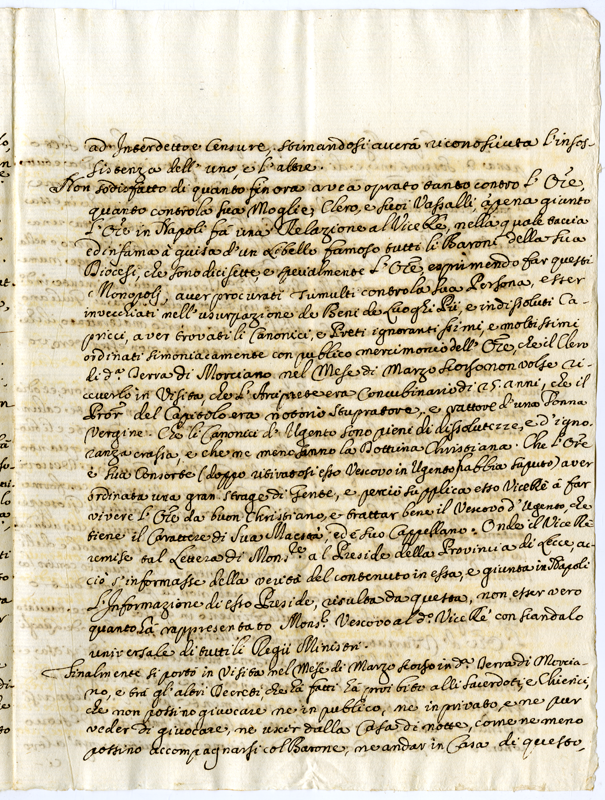 ad' Interdetto e Censure, stimandosi averà riconosciuta l'insos-
sistenza dell' uno, e l'altre.
Non sodisfatto di quanto fin ora avea oprato tanto contro l'Ore,
quanto contro la sua Moglie, Clero, e suoi Vassalli, à pena giunto
l'Ore in Napoli fà una Relazione al Vicerè, nella quale taccia
ed infama à guisa d'un Libello famoso tutti li Baroni della sua
Diocesi, che sono diecisette, e specialmente l'Ore, esprimendo far questi
Monopolj, aver procurati Tumulti contro la sua Persona, esser
invecchiati nell' usurpazione de Beni de Luoghi Pii, e indissoluti Ca-
pricci, aver trovati li Canonici, e Preti ignorantissimi, e moltissimi
ordinati simoniacamente con publico mercimonio dell' Ore, che il Clero
di da. Terra di Morciano nel Mese di Marzo scorso non volse ri-
ceverlo in Visita, che l'Arciprete era Concubinario di 25. anni, che il
Pror. del Capitolo era notorio stupratore, e rattore d'una Donna
Vergine. Che li Canonici d' Ugento sono pieni di dissolutezze, e d'igno-
ranza crassa, e che ne meno sanno la Dottrina Christiana. Che l'Ore
e sua Consorte (doppo ritiratosi esso Vescovo in Ugento habbia saputo) aver
ordinata una gran strage di Gente, e perciò supplica esso Vicerè à far
vivere l'Ore da buon Christiano, e trattar bene il Vescovo d'Ugento, che
tiene il Carattere di Sua Maestà, ed è suo Cappellano. Onde il Vicerè
remise tal Lettera di Monsre. al Preside della Provincia di Lecce, ac-
ciò s'informasse della verità del contenuto in essa, e giunta in Napoli
l'Informazione di esso Preside, risulta da questa, non esser vero
quanto hà rappresentato Monsr. Vescovo al do. Vicerè con scandalo
universale di tutti li Regii Ministri.
Finalmente si portò in Visita nel Mese di Marzo scorso in da. Terra di Morcia-
no, e trà gli altri Decreti, che hà fatti hà proibito alli Sacerdoti, e Chierici,
che non possino giuocare ne in publico, ne in privato, e ne pur
veder di giuocare, ne uscir dalla Casa di notte, come ne meno
possino accompagnarsi col Barone, ne andar in Casa di questo,